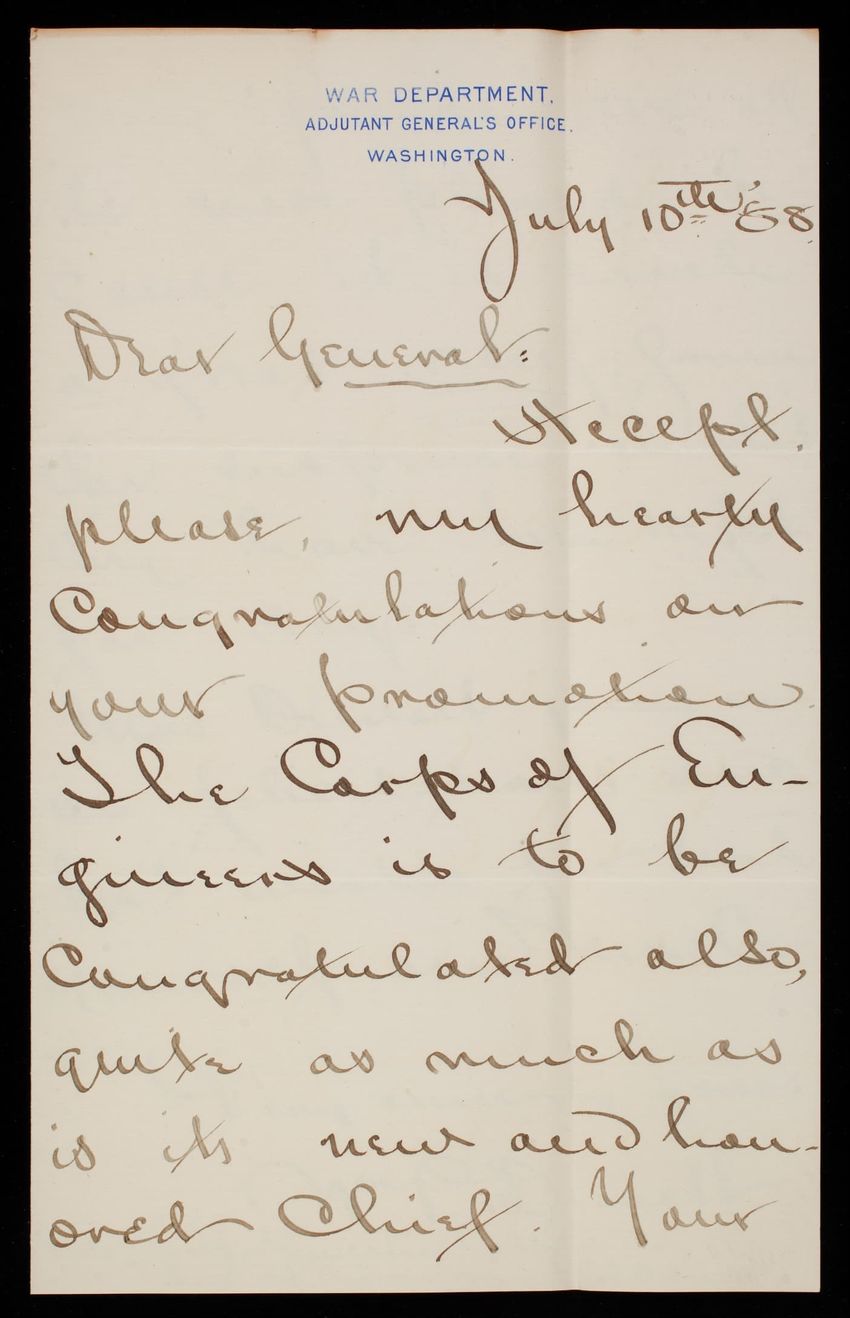 WAR DEPARTMENT,
ADJUTANT GENERAL'S OFFICE,
WASHINGTON.
July 10th, '88.
Dear General:
Accept,
please, my hearty
Congratulations on
your promotion.
The Corps of En-
gineers is to be
Congratulated also,
quite as much as
is its new and hon-
ored Chief. Your